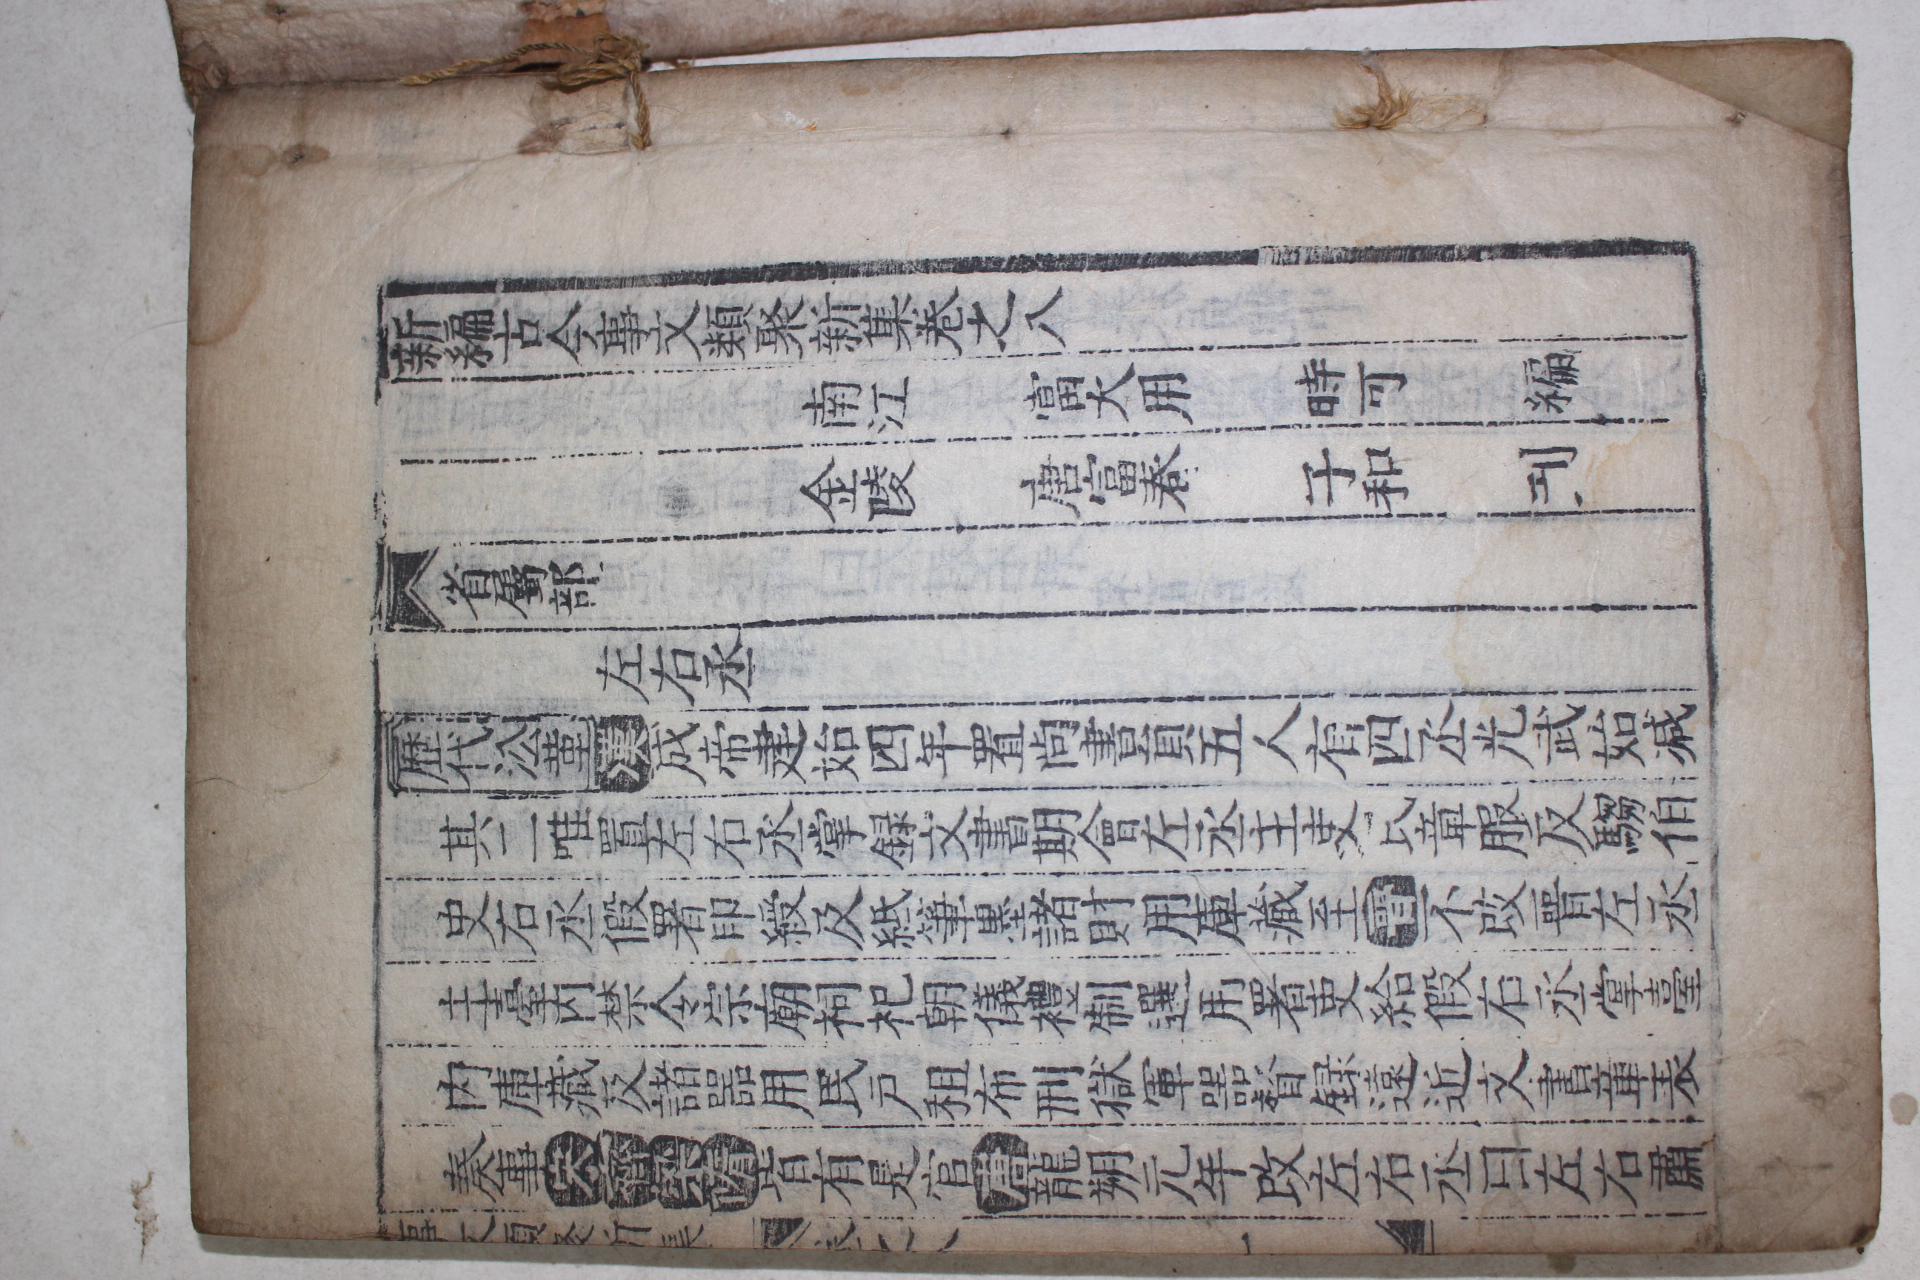 新編古今事文類聚新集卷之八
南江 富大用 時可 編
金陵 唐富春 子和 刊
省屬部
左右丞
歷代沿革 漢成帝建始四年置尚書員五人有四丞光武始減
其二唯置左右丞掌錄文書期會左丞主吏民章服及騶伯
史右丞假署印綬及紙筆墨諸財用庫藏至晉不改晉左丞
主臺內禁令宗廟祠祀朝儀禮制選用署吏給假右丞掌臺
內庫藏及諸器用民戶租布刑獄軍器督錄遠近文書章表
奏事 皆有是官唐龍朔元年改左右丞曰左右肅